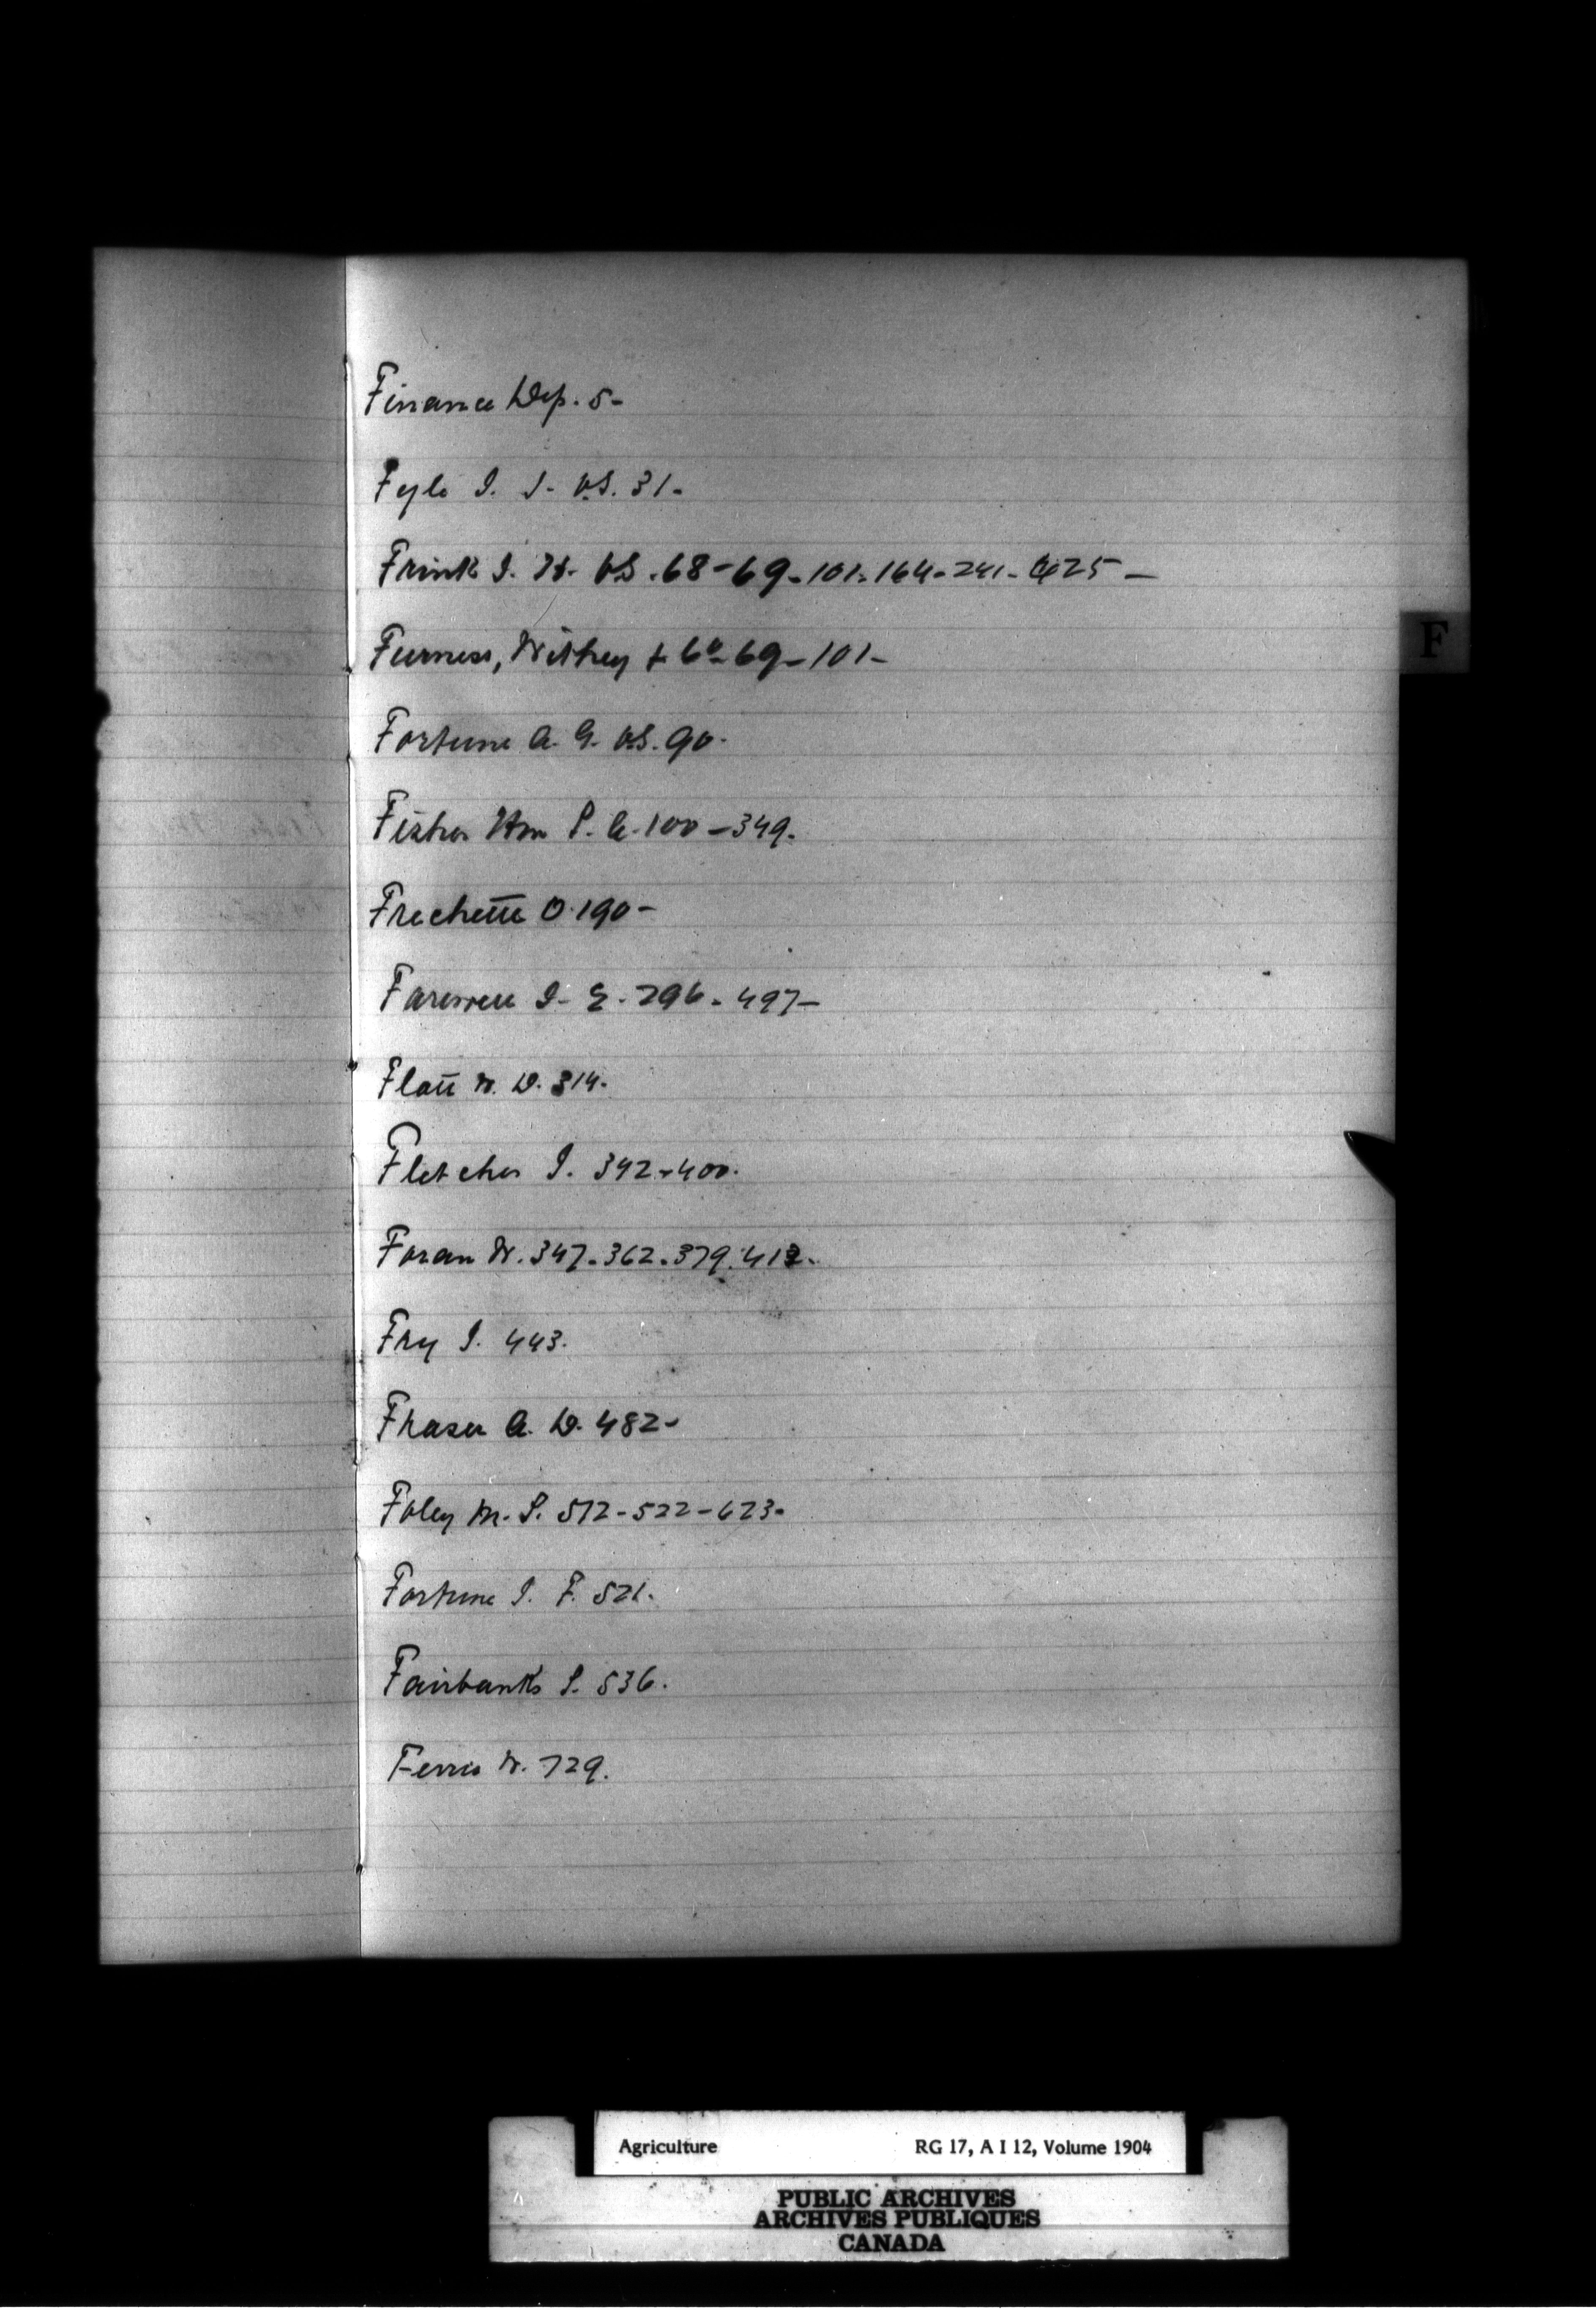 Finance Dep. 5-
Fyle J. J- V.S. 31-
Frink J. H. V.S. 68-69-101-164-241-425-
F
Furness, Withey & Co 69-101-
Fortune A. G. V.S. 90-
Fisher Hon S. A. 100-349-
Frechette O. 190-
Farewell J- E. 296-497-
Flatt W. D. 314-
Fletcher J. 342-400-
Foran W. 347-362-379-412-
Fry J. 443-
Fraser A. D. 482-
Foley M. S. 512-522-623-
Fortune J. F. 521-
Fairbanks S. 536.
Ferris W. 729.
Agriculture RG 17, A I 12, Volume 1904
PUBLIC ARCHIVES
ARCHIVES PUBLIQUES
CANADA